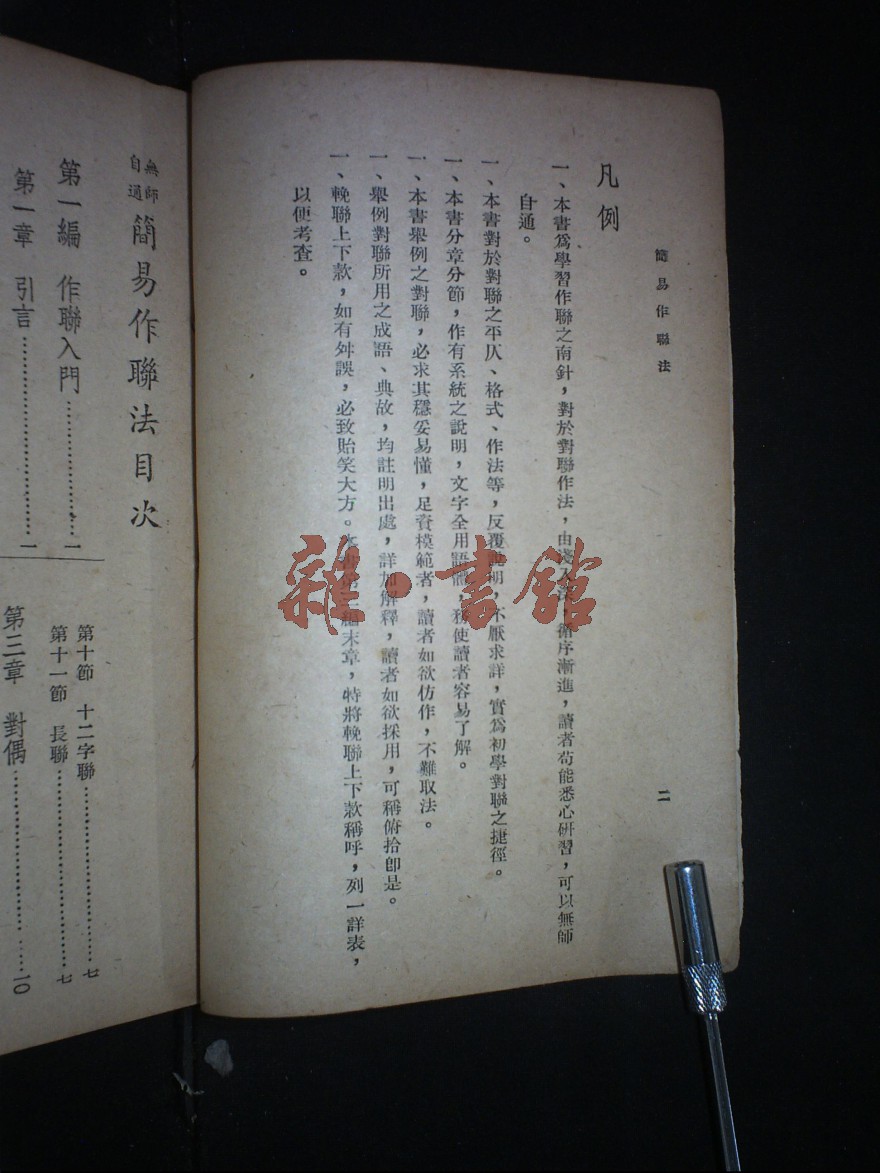 簡易作聯法
二
凡例
一、本書爲學習作聯之南針，對於對聯作法，由淺入 循序漸進，讀者苟能悉心研習，可以無師
自通。
一、本書對於對聯之平仄、格式、作法等，反覆說明，不厭求詳，實爲初學對聯之捷徑。
一、本書分章分節，作有系統之說明，文字全用語體，務使讀者容易了解。
一、本書舉例之對聯，必求其穩妥易懂，足資模範者，讀者如欲仿作，不難取法。
一、舉例對聯所用之成語、典故，均註明出處，詳加解釋，讀者如欲採用，可稱俯拾卽是。
一、輓聯上下款，如有舛誤，必致貽笑大方。本 編末章，特將輓聯上下款稱呼，列一詳表，
以便考查。
無師自通 簡易作聯法目次
第一編 作聯入門……一
第一章 引言……一
第十節 十二字聯……七
第十一節 長聯……七
第三章 對偶……10
雜·書館